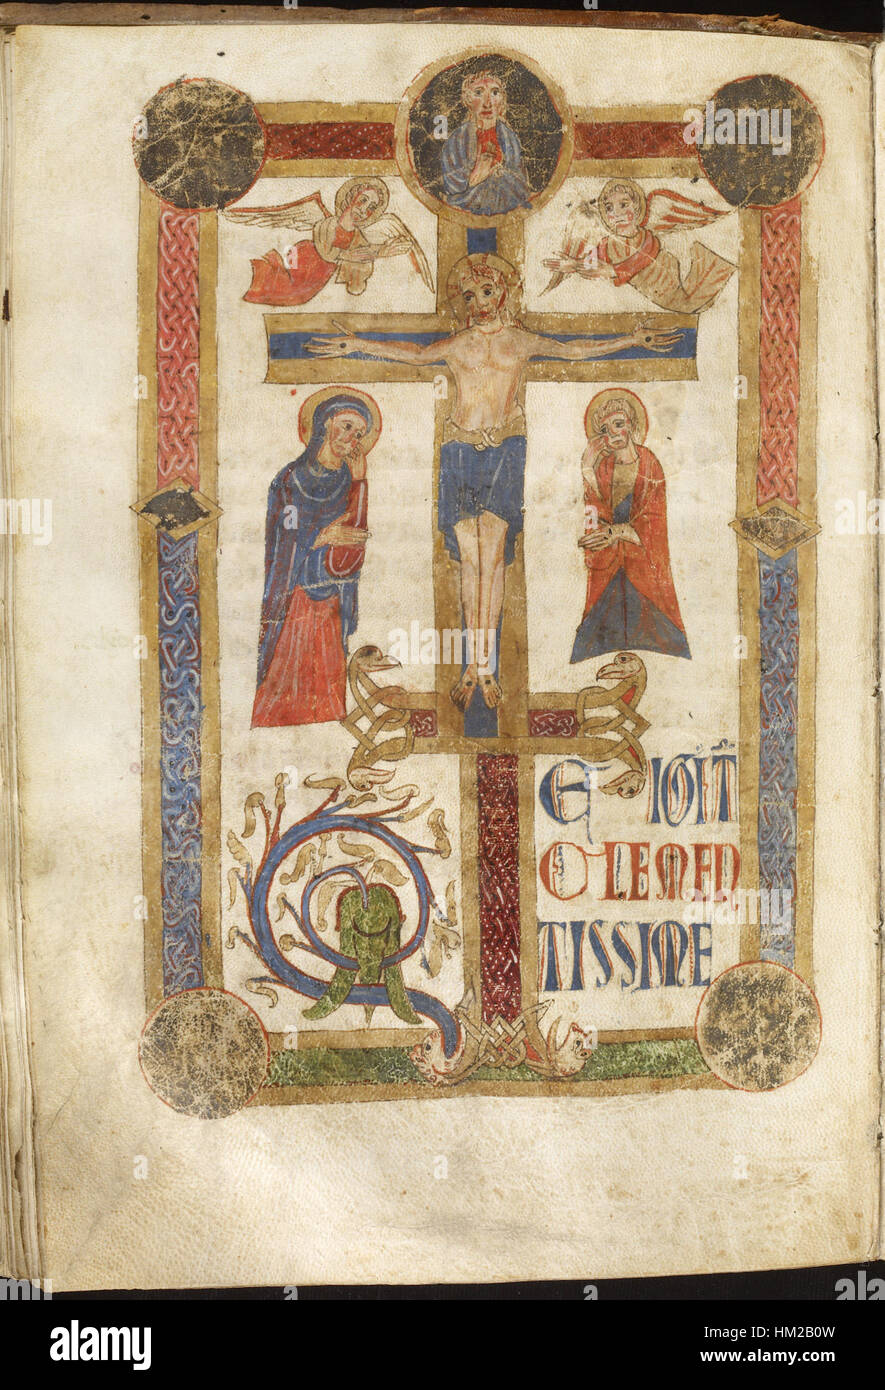 E IGIT
CLEMEN
TISSIME
alamy
Image ID: HM2B0W
www.alamy.com